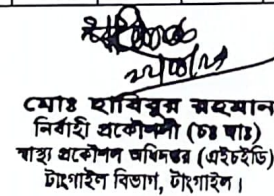 মোঃ হাবিবুর রহমান
নির্বাহী প্রকৌশলী (চঃ দাঃ)
স্বাস্থ্য প্রকৌশল অধিদপ্তর (এইচইডি)
টাংগাইল বিভাগ, টাংগাইল।